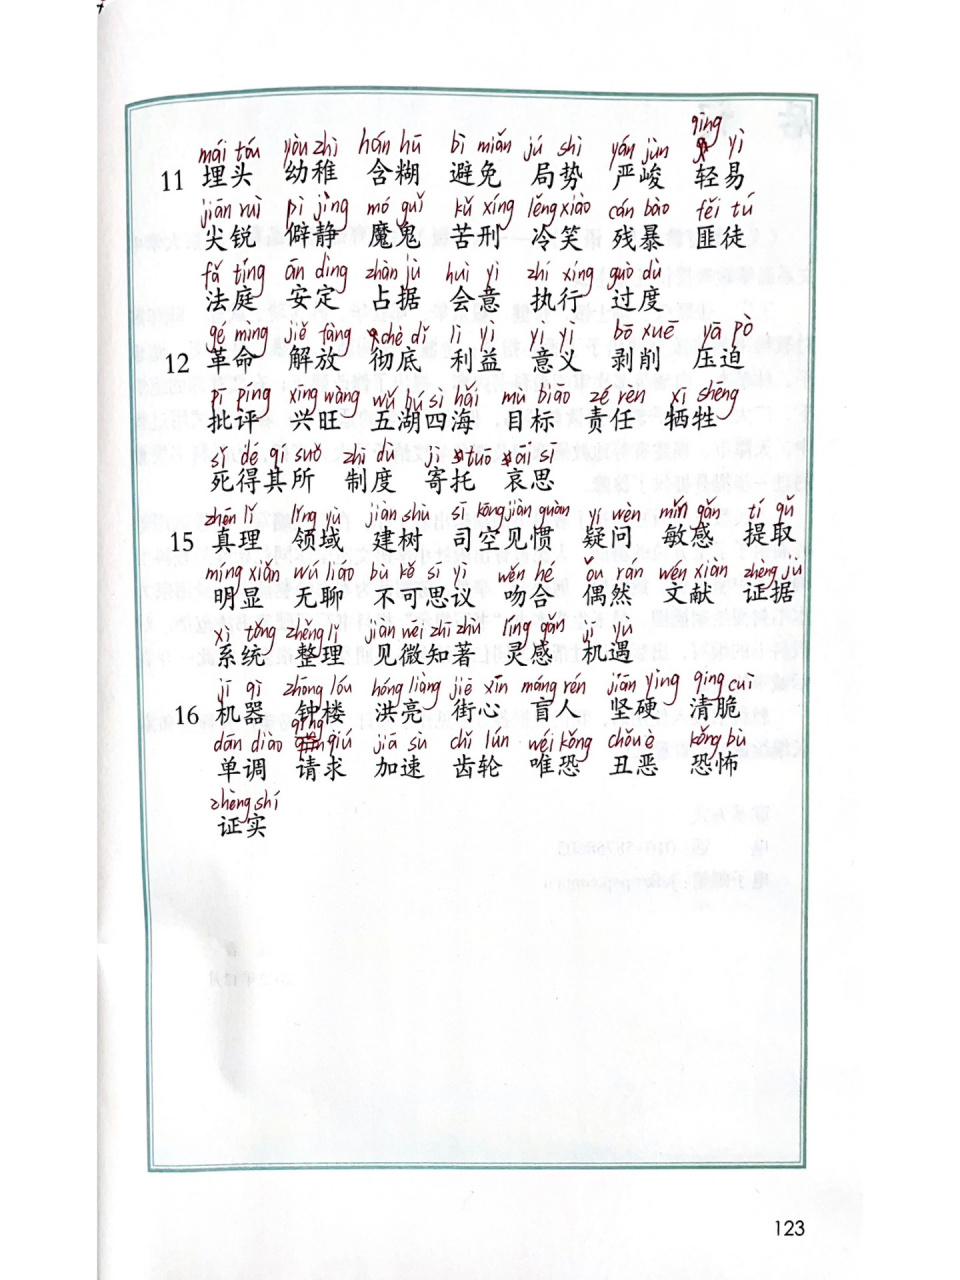 mái tóu yòu zhì hán hū bì miǎn jú shì yán jùn qīng yì
11 埋头 幼稚 含糊 避免 局势 严峻 轻易
jiān ruì pì jìng mó guǐ kǔ xíng lěng xiào cán bào fěi tú
尖锐 僻静 魔鬼 苦刑 冷笑 残暴 匪徒
fǎ tíng ān dìng zhàn jù huì yì zhí xíng guò dù
法庭 安定 占据 会意 执行 过度
gé mìng jiě fàng chè dǐ lì yì yì yì bō xuē yā pò
12 革命 解放 彻底 利益 意义 剥削 压迫
pī píng xīng wàng wǔ hú sì hǎi mù biāo zé rèn xī shēng
批评 兴旺 五湖四海 目标 责任 牺牲
sǐ dé qí suǒ zhì dù jì tuō āi sī
死得其所 制度 寄托 哀思
zhēn lǐ lǐng yù jiàn shù sī kōng jiàn guàn yí wèn mǐn gǎn tí qǔ
15 真理 领域 建树 司空见惯 疑问 敏感 提取
míng xiǎn wú liáo bù kě sī yì wěn hé ǒu rán wén xiàn zhèng jù
明显 无聊 不可思议 吻合 偶然 文献 证据
xì tǒng zhěng lǐ jiàn wēi zhī zhù líng gǎn jī yù
系统 整理 见微知著 灵感 机遇
jī qì zhōng lóu hóng liàng jiē xīn máng rén jiān yìng qīng cuì
16 机器 钟楼 洪亮 街心 盲人 坚硬 清脆
dān diào qǐng qiú jiā sù chǐ lún wéi kǒng chǒu è kǒng bù
单调 请求 加速 齿轮 唯恐 丑恶 恐怖
zhèng shí
证实
123